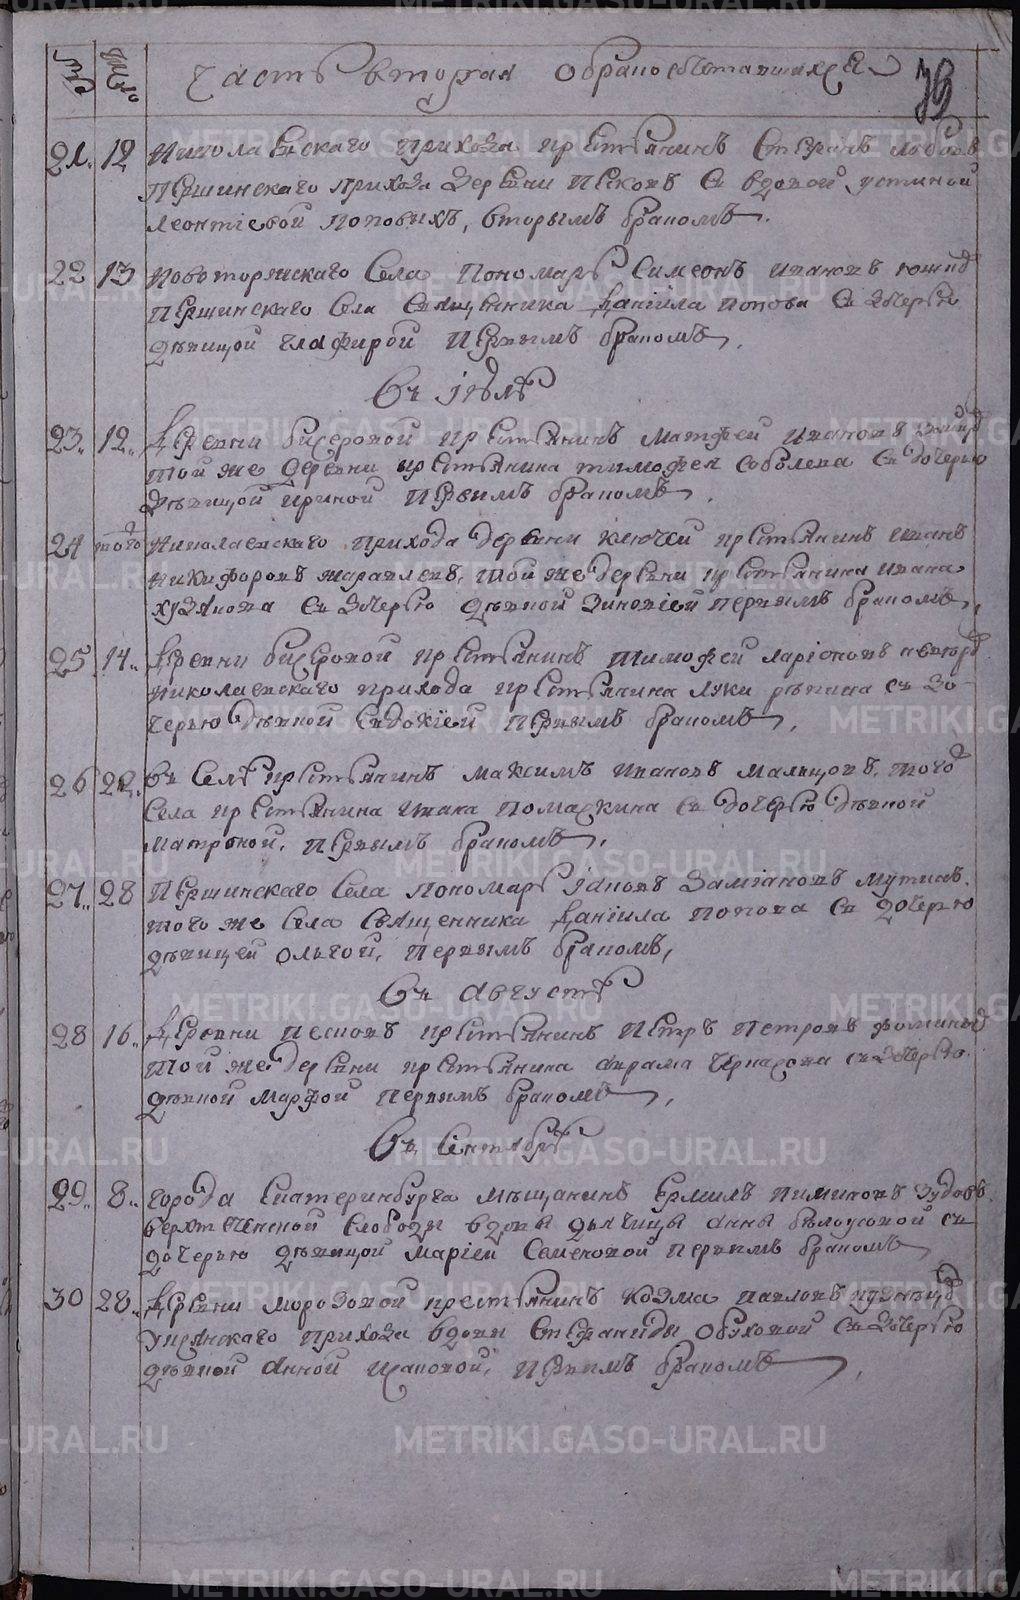 № Число Часть вторая О бракосочетавшихся 79
21. 12 Николаевскаго прихода крестьянинъ Стефанъ
Першинскаго прихода деревни Песковъ съ вдовой Устиньой
Леонтіевой Поповыхъ, вторымъ бракомъ.
22 13 Новоторжскаго Села Пономарь Симеонъ Ивановъ
Першинскаго Села Священника Даніила Попова съ дочерью
девицой Глафирой Первымъ бракомъ.
Въ Іюлѣ
23. 12. Деревни Бисеровой крестьянинъ Матфей Ивановъ
той же деревни крестьянина Тимофея Соболева съ дочерью
дѣвицой Ириной первымъ бракомъ.
24 того Николаевскаго прихода деревни Ключей крестьянинъ Иванъ
Никифоровъ Жаравлевъ, той же деревни крестьянина Ивана
Худякова съ дочерью дѣвкой Зиновіей первымъ бракомъ,
25 14. Деревни Бисеровой крестьянинъ Тимофей Ларіоновъ
Николаевскаго прихода крестьянина Луки Рѣпина съ до-
черью дѣвкой Евдокіей первымъ бракомъ,
26 22. Въ Селѣ крестьянинъ Максимъ Ивановъ Мальцовъ. того
Села крестьянина Ивана Помаскина съ дочерью дѣвкой
Матроной. первымъ бракомъ.
27. 28 Першинскаго Села Пономарь Іаковъ Заміановъ Мутинъ.
того же Села Священника Даніила Попова съ дочерью
дѣвицей Ольгой. первымъ бракомъ,
Въ Августѣ
28 16. Деревни Песковъ крестьянинъ Петръ Петровъ Фоминыхъ
той же деревни крестьянина Аврама съ дочерью
дѣвкой Марфой первымъ бракомъ,
Въ Сентябрѣ
29. 8. Города Екатеринбурга мѣщанинъ Ермилъ Пимяновъ Зудовъ
Верхтеченской Слободы вдовы Анны Бѣлоусовой съ
дочерью дѣвицой Маріей Семеновой первымъ бракомъ
30 28. Деревни Морозовой крестьянинъ Козма Павловъ
Уксянскаго прихода вдовы Стефаниды Обуховой съ дочерью
дѣвкой Анной Исаковой, первымъ бракомъ,
METRIKI.GASO-URAL.RU